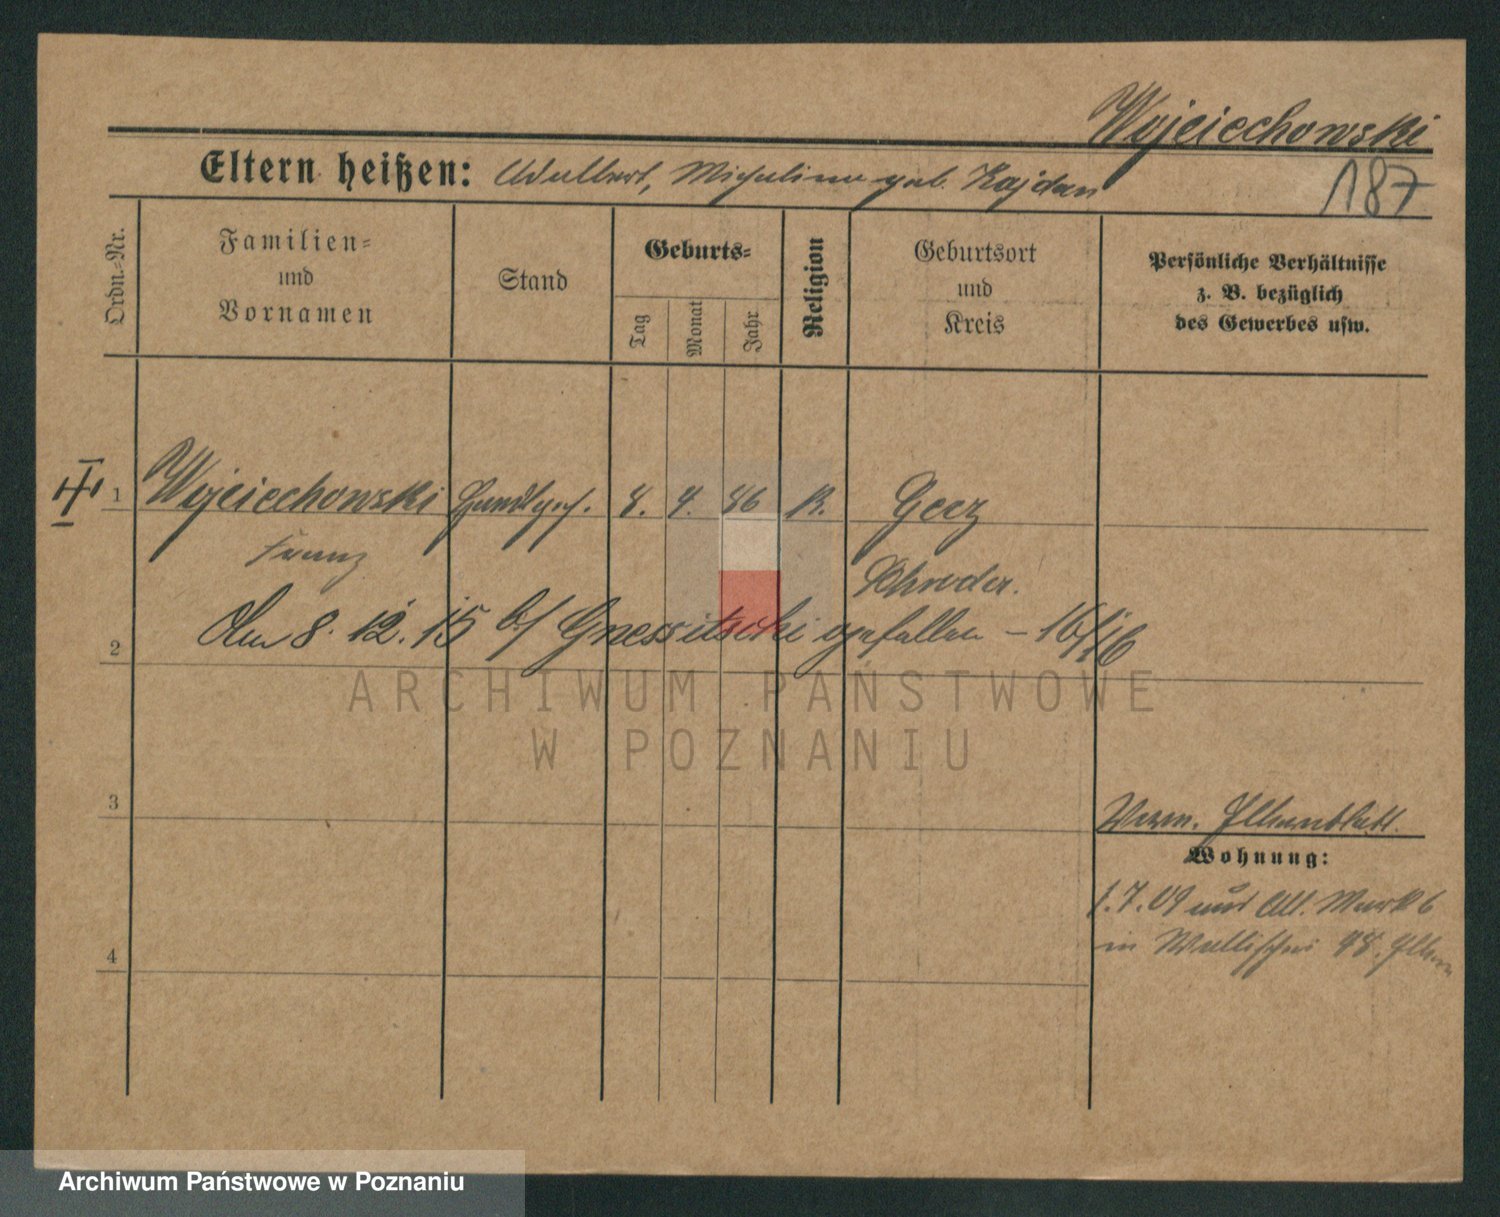 Wojciechowski
Eltern heißen: Adalbert, Michalina geb. Kajdan
187
Ordn.-Nr.
Familien-
und
Vornamen
Stand
Geburts-
Tag
Monat
Jahr
Religion
Geburtsort
und
Kreis
Persönliche Verhältnisse
z. B. bezüglich
des Gewerbes usw.
1 Wojciechowski 8. 4. 86 K. Gecz
Franz
Schroda.
Am 8. 12. 15 gefallen – 16/16
2
ARCHIWUM PAŃSTWOWE
W POZNANIU
3
Verm. Elternblatt.
Wohnung:
1.7.09 aus Alt. Markt 6
in Wallischei 48.
4
Archiwum Państwowe w Poznaniu